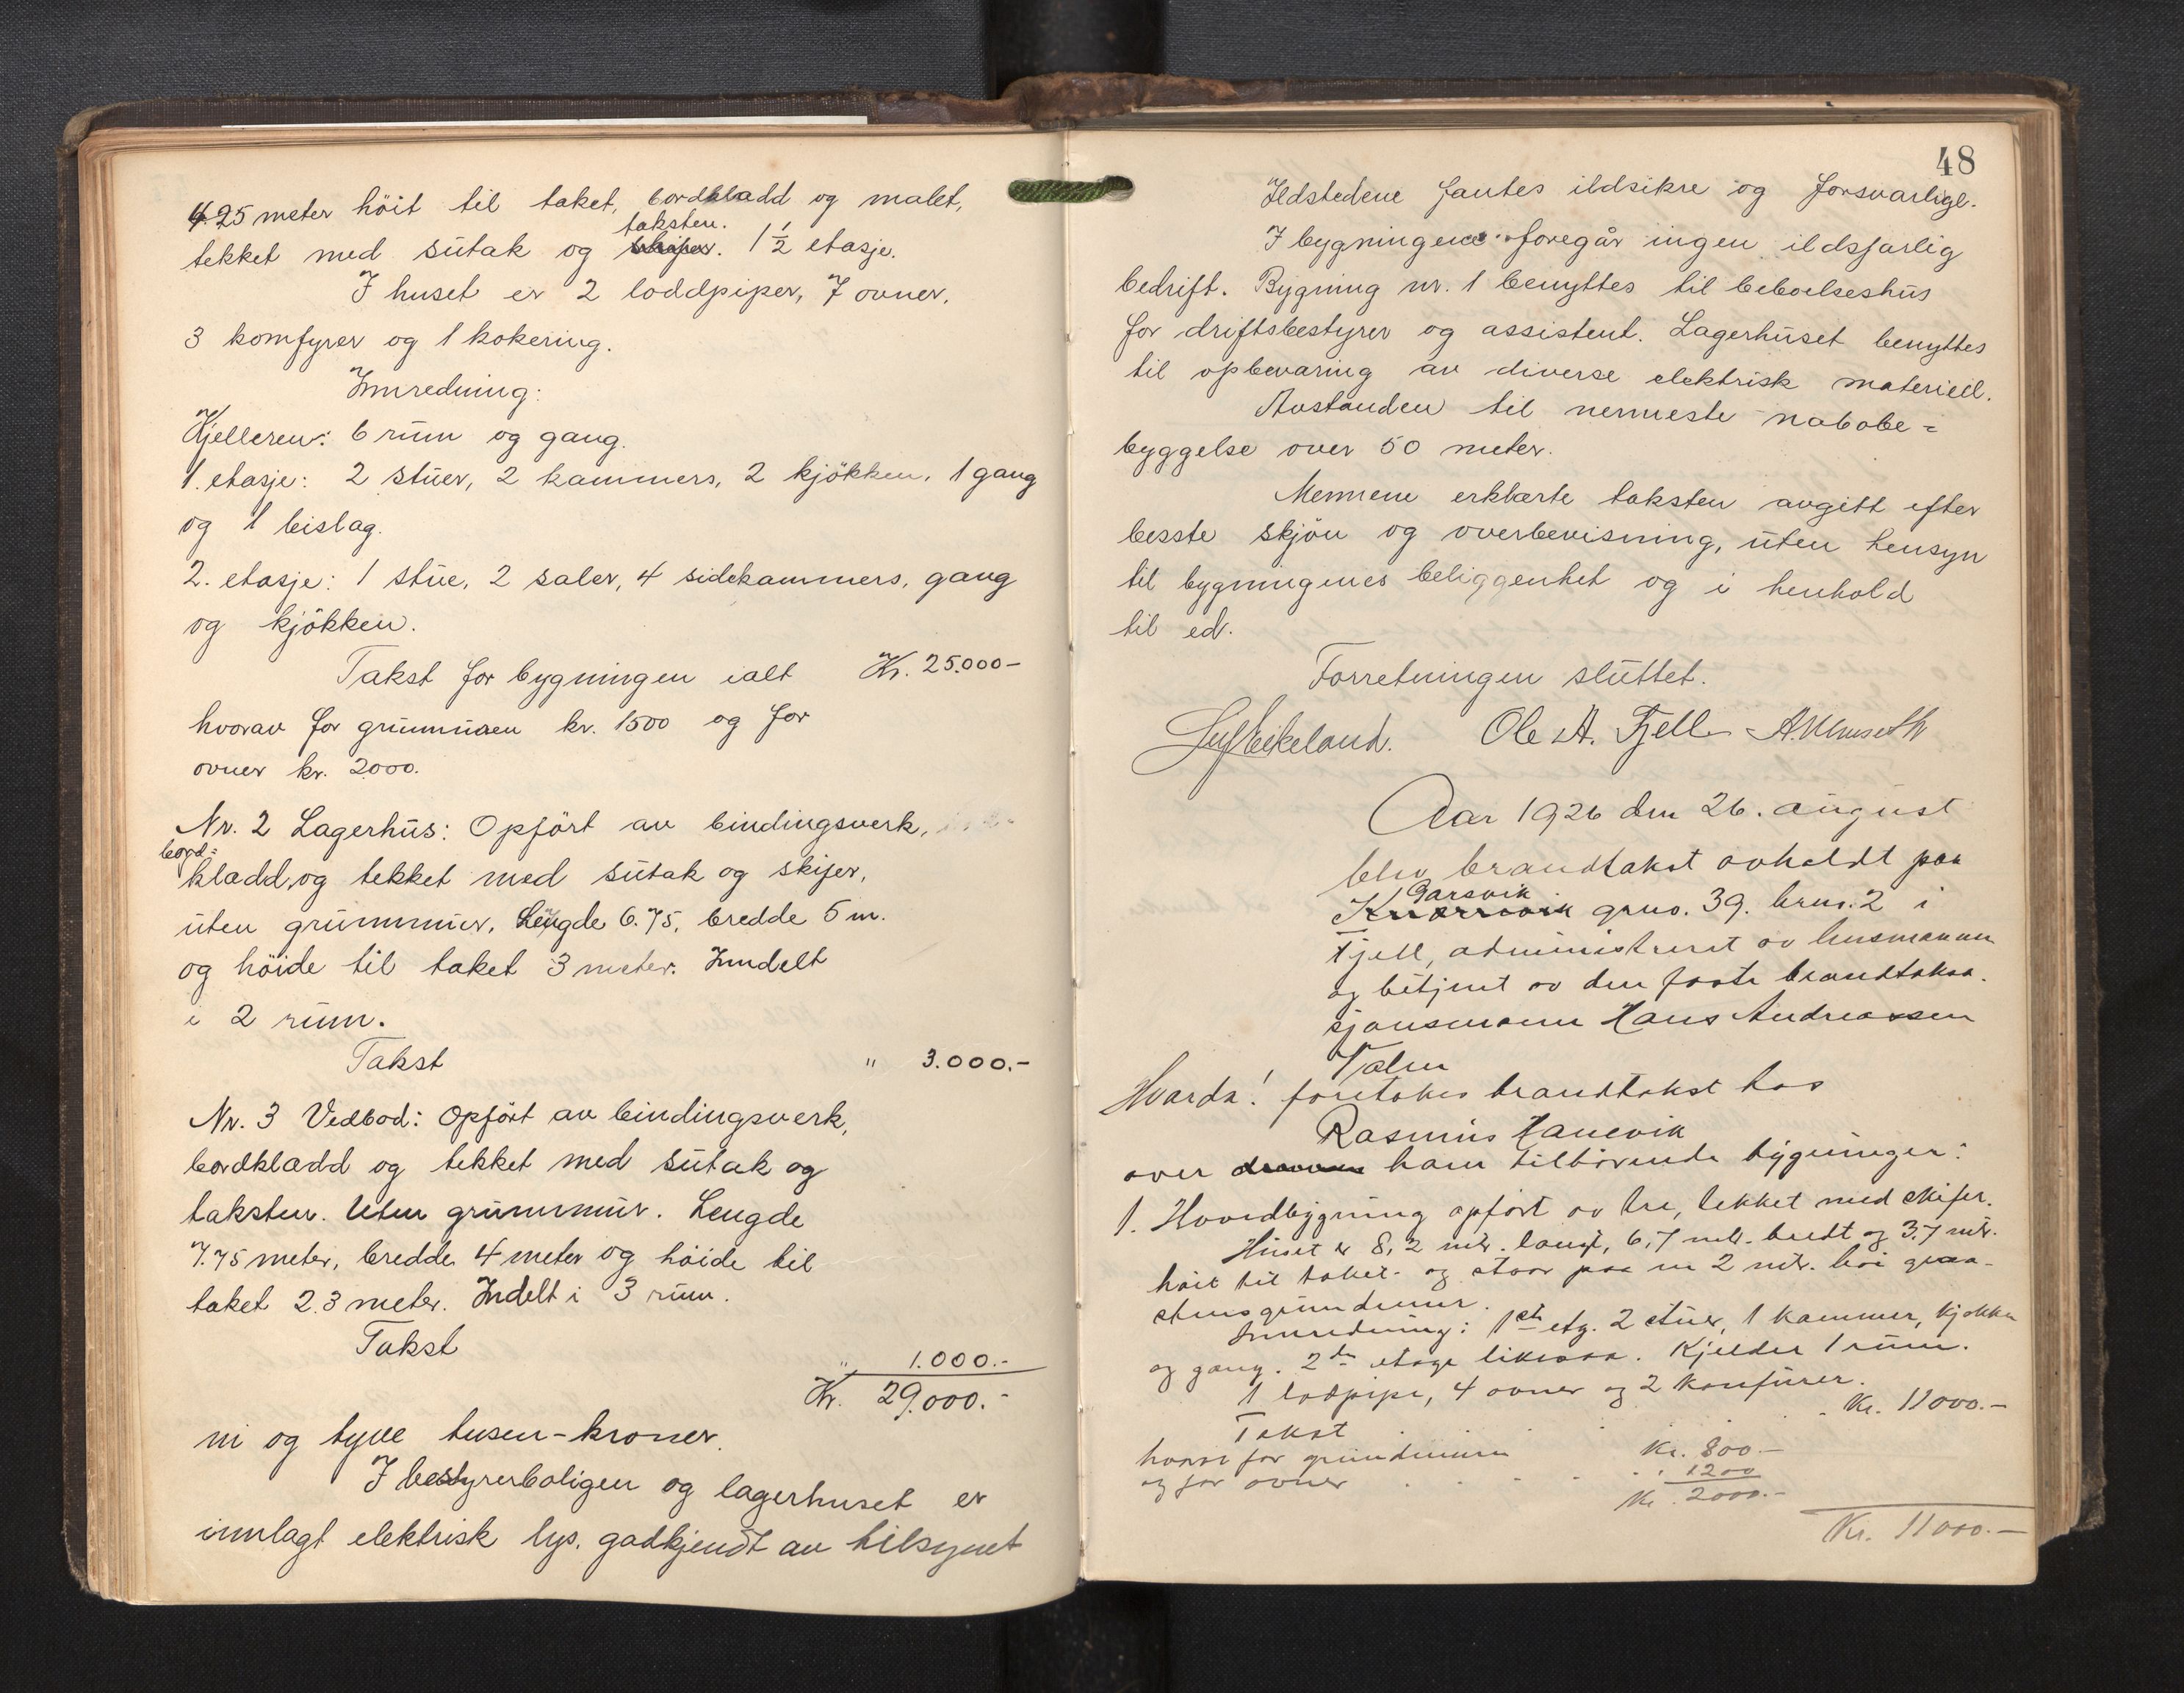 4.25 meter höit til taket, bordkladd og malet,
taksten.
tekket med sutak og skifer. 1 1/2 etasje.
I huset er 2 loddpiper, 7 ovner,
3 komfyrer og 1 kokering.
Innredning:
Kjelleren: 6 rum og gang.
1. etasje: 2 stuer, 2 kammers, 2 kjökken, 1 gang
og 1 bislag.
2. etasje: 1 stue, 2 saler, 4 sidekammers, gang
og kjökken.
Takst for bygningen ialt Kr. 25.000-
hvorav for grunnmuren kr. 1500 og for
ovner kr. 2000.
Nr. 2 Lagerhus: Opfört av bindingsverk,
bord=
kladd, og tekket med sutak og skifer,
uten grunnmur. Lengde 6.75, bredde 5 m.
og höide til taket 3 meter. Inndelt
i 2 rum.
Takst " 3.000.-
Nr. 3 Vedbod: Opfört av bindingsverk,
bordkladd og tekket med sutak og
taksten. Uten grunnmur. Lengde
7.75 meter, bredde 4 meter og höide til
taket 2.3 meter. Indelt i 3 rum.
Takst
" 1.000.-
Kr. 29.000.-
ni og tyve tusen-kroner.
I bestyrerboligen og lagerhuset er
innlagt elektrisk lys, godkjendt av tilsynet
48
Ildstedene fantes ildsikre og forsvarlige.
I bygningene foregår ingen ildsfarlig
bedrift. Bygning nr. 1 benyttes til beboelseshus
for driftsbestyrer og assistent. Lagerhuset benyttes
til opbevaring av diverse elektrisk materiell.
Avstanden til nermeste nabobe=
byggelse over 50 meter.
Mennene erklærte taksten avgitt efter
besste skjön og overbevisning, uten hensyn
til bygningenes beliggenhet og i henhold
til ed.
Forretningen sluttet.
Eikeland. Ole A. Fjell
Aar 1926 den 26. august
blev brandtakst avholdt paa
Garsvik
Knarrevik grno. 39. brno. 2 i
Fjell, administreret av lensmannen
og betjent av den faste brandtaksa-
sjonsmann Hans Andreassen
Valen
Hvorda! foretokes brandtakst hos
Rasmus Hanevik
over ham tilhörende bygninger:
1. Hovedbygning opfört av tre, tekket med skifer.
Huset er 8,2 mtr. langt, 6,7 mtr. bredt og 3.7 mtr.
höit til taket og staar paa en 2 mtr. höi graa-
stensgrundmur.
Innredning: 1ste etg. 2 stuer, 1 kammer, kjökken
og gang. 2den etage likesaa. Kjelder 1 rum.
1 lodpipe, 4 ovner og 2 komfürer.
Takst Kr. 11000.-
hvorav for grundmuren Kr. 800.-
og for ovner " 1200
Kr. 2000.-
Kr. 11000.-